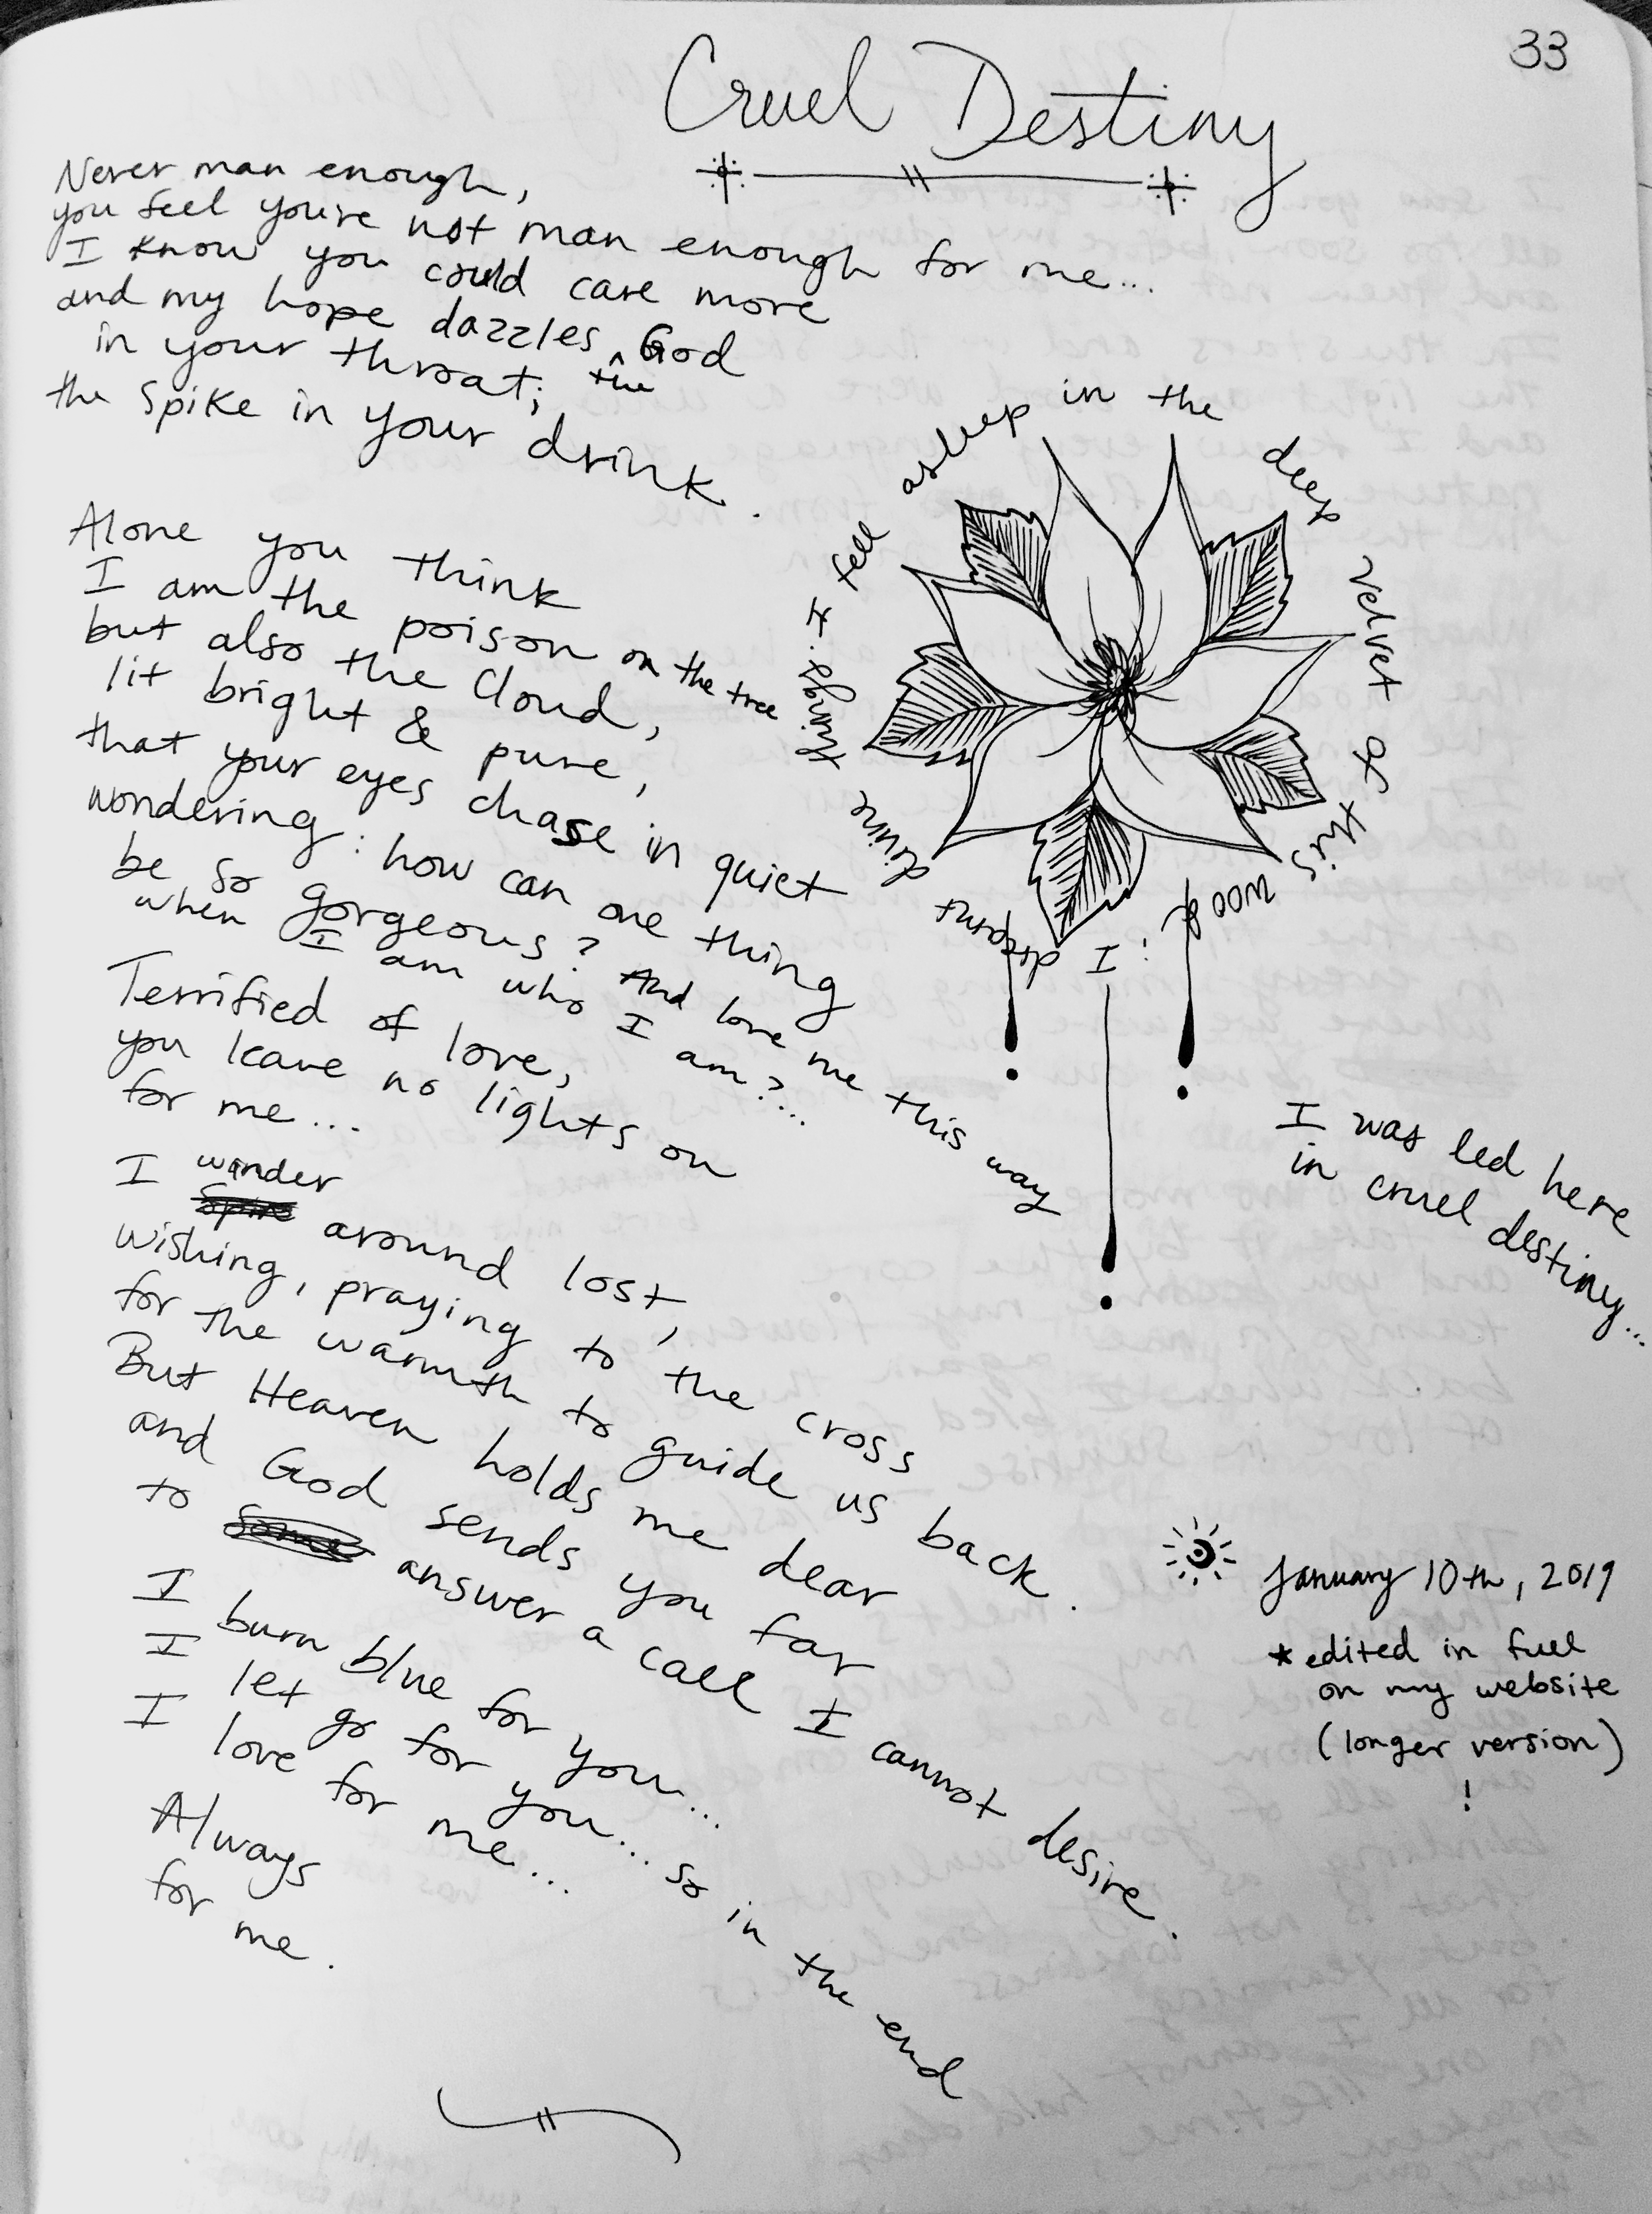 33
Cruel Destiny
Never man enough,
you feel you're not man enough for me...
I know you could care more
and my hope dazzles, the God
in your throat;
the spike in your drink.
Alone you think
I am the poison on the tree
but also the cloud,
lit bright & pure,
that your eyes chase in quiet
wondering: how can one thing
be so gorgeous? And love me this way
when I am who I am?...
Terrified of love,
you leave no lights on
for me...
I wander around lost,
wishing, praying to the cross
for the warmth to guide us back.
But Heaven holds me dear
and God sends you far
to answer a call I cannot desire.
I burn blue for you...
I let go for you... so in the end
I love for me...
Always
for me.
I fell asleep in the deep velvet of this wood; I drempt divine things.
I was led here
in cruel destiny...
January 10th, 2019
* edited in full
on my website
(longer version)
!